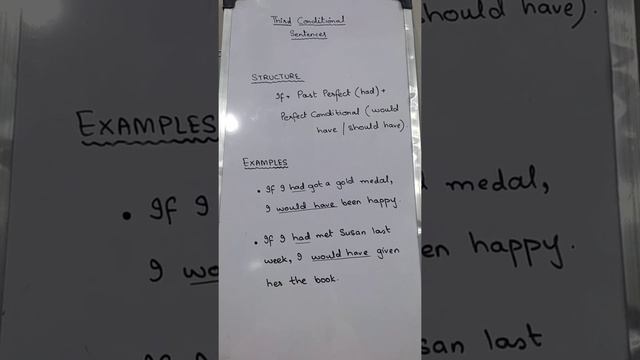 Third Conditional
Sentences
STRUCTURE
If + Past Perfect (had) +
Perfect Conditional (would
have / should have)
EXAMPLES
• If I had got a gold medal,
I would have been happy.
• If I had met Susan last
week, I would have given
her the book.